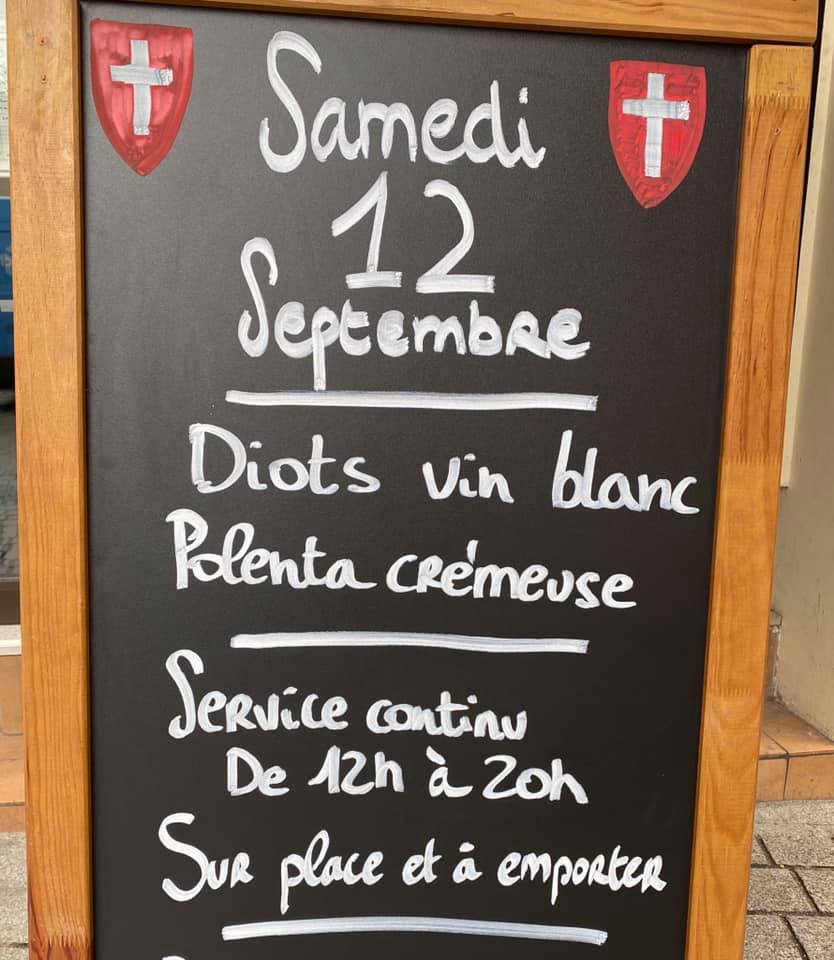 Samedi
12
Septembre
Diots vin blanc
Polenta crémeuse
Service continu
De 12h à 20h
Sur place et à emporter